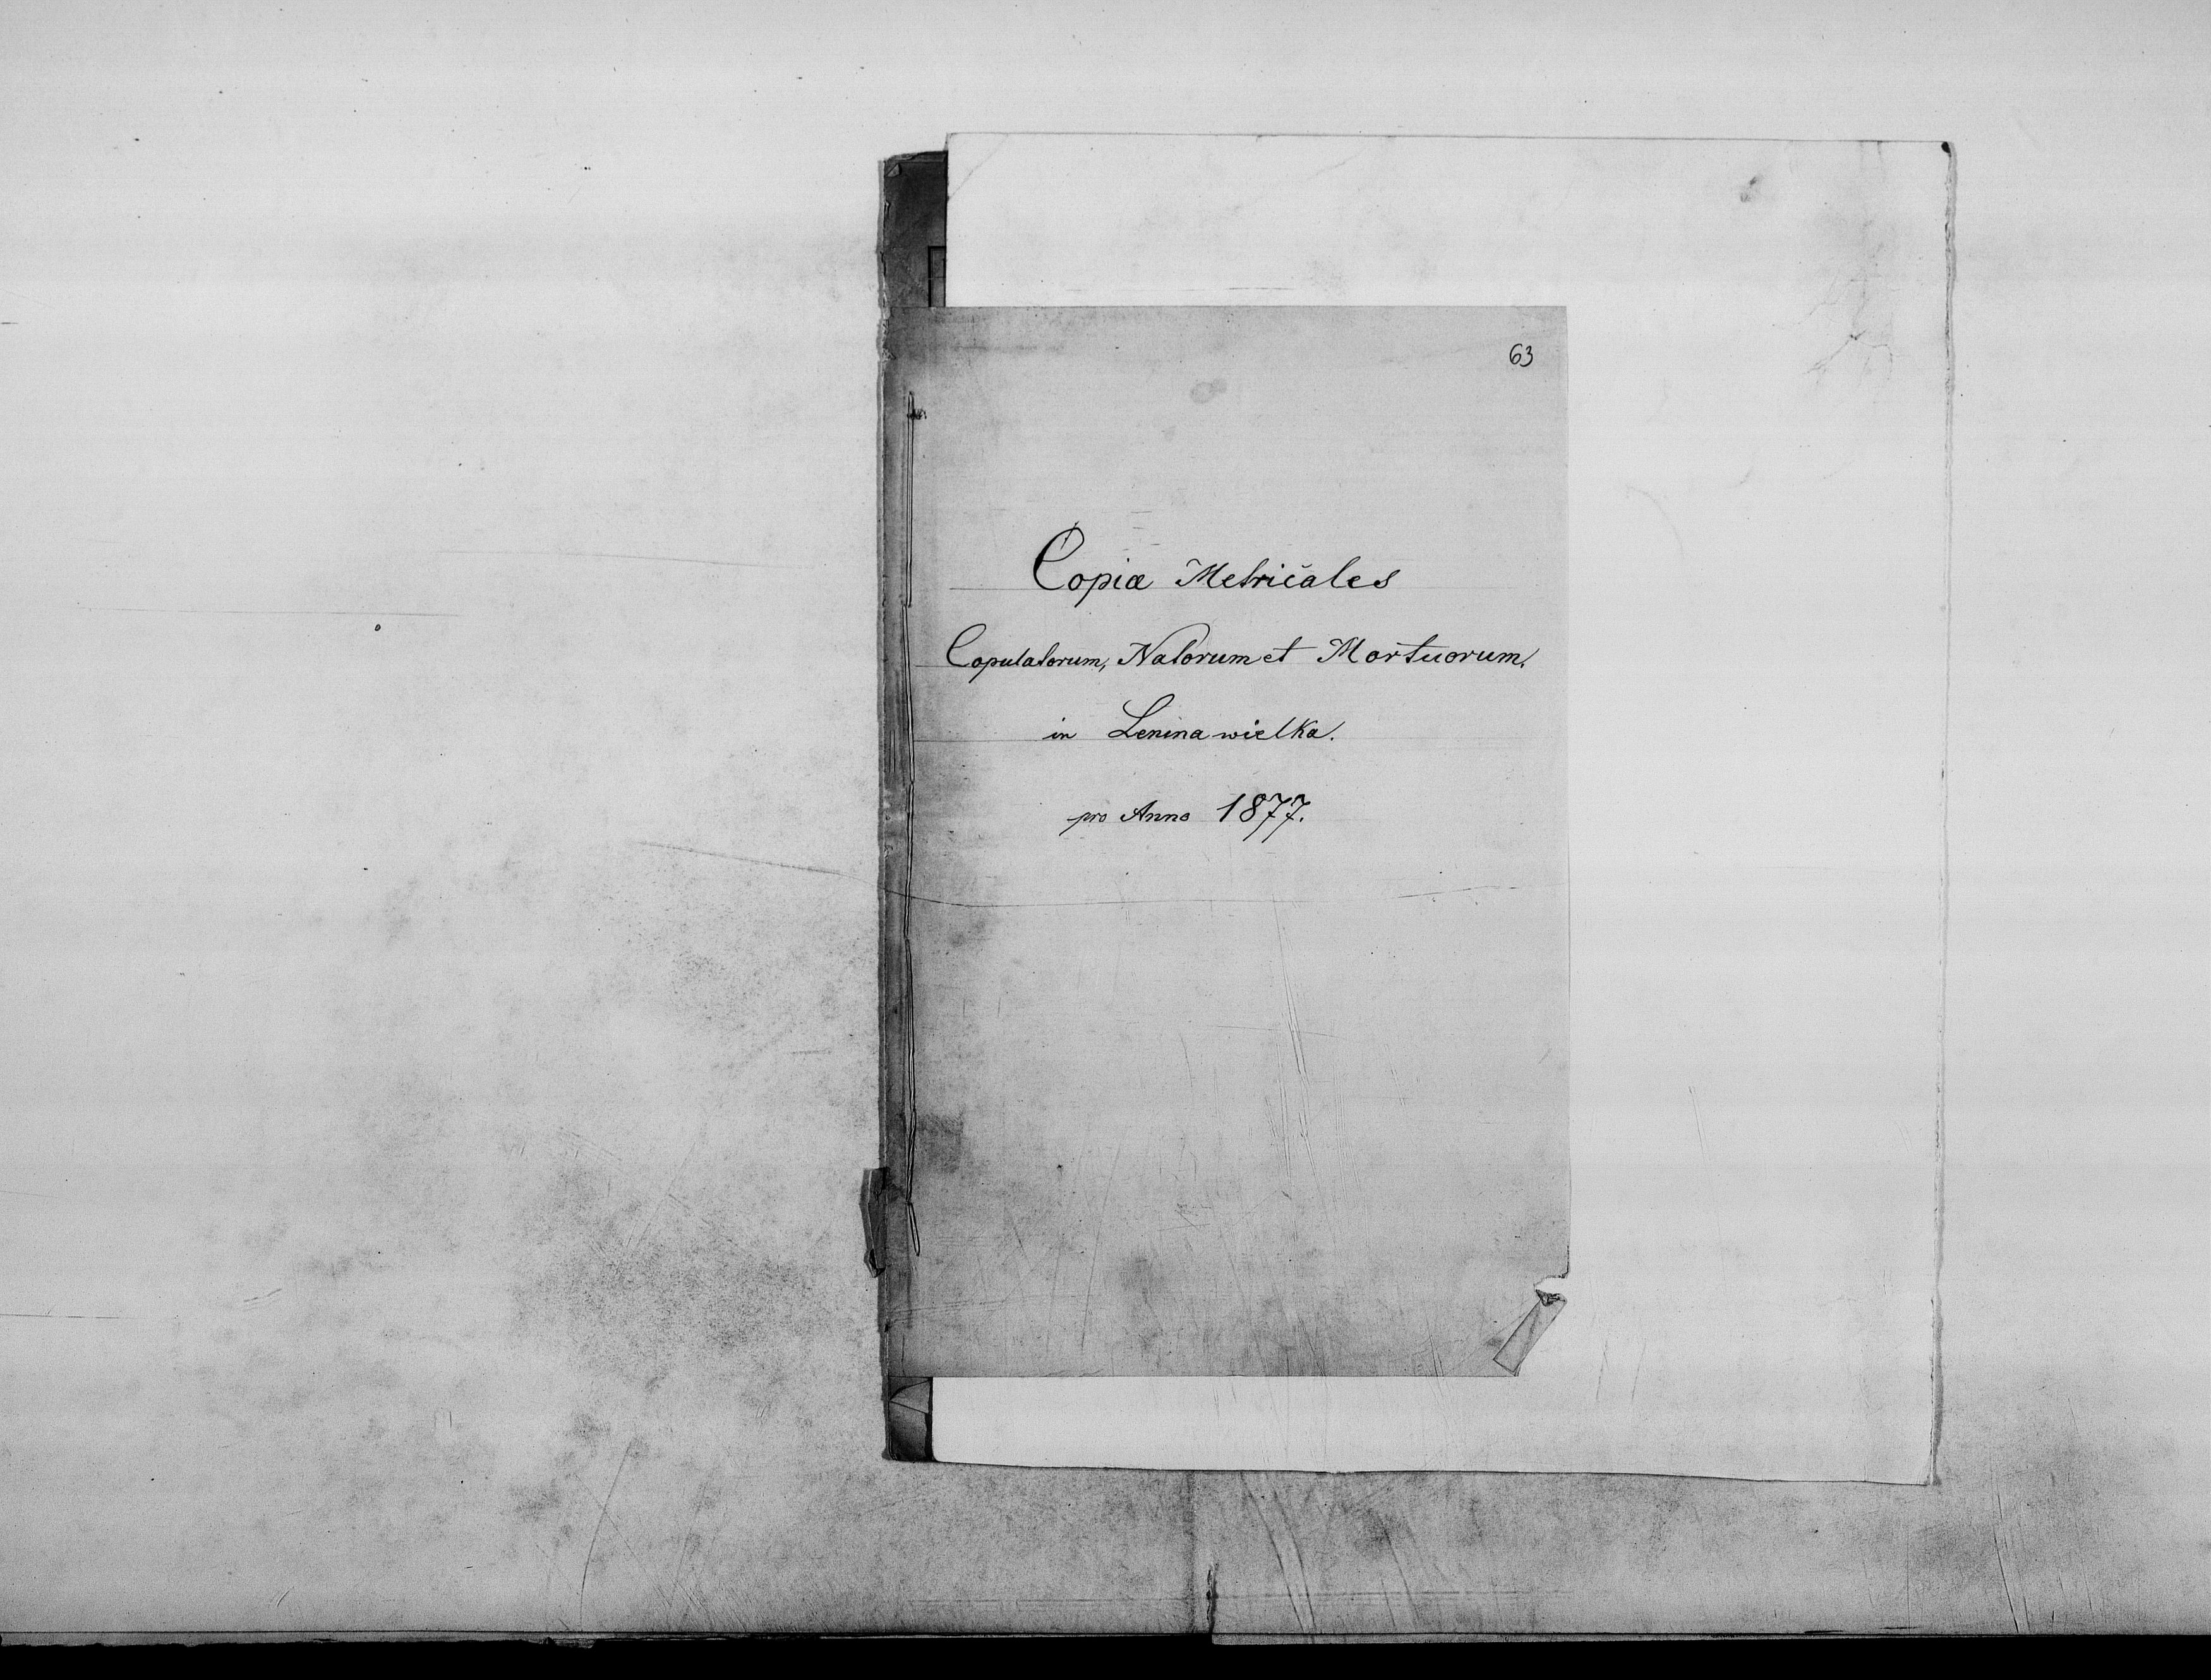 63
Copiæ Metricales
Copulatorum, Natorum et Mortuorum.
in Lenina wielka.
pro Anno 1877.